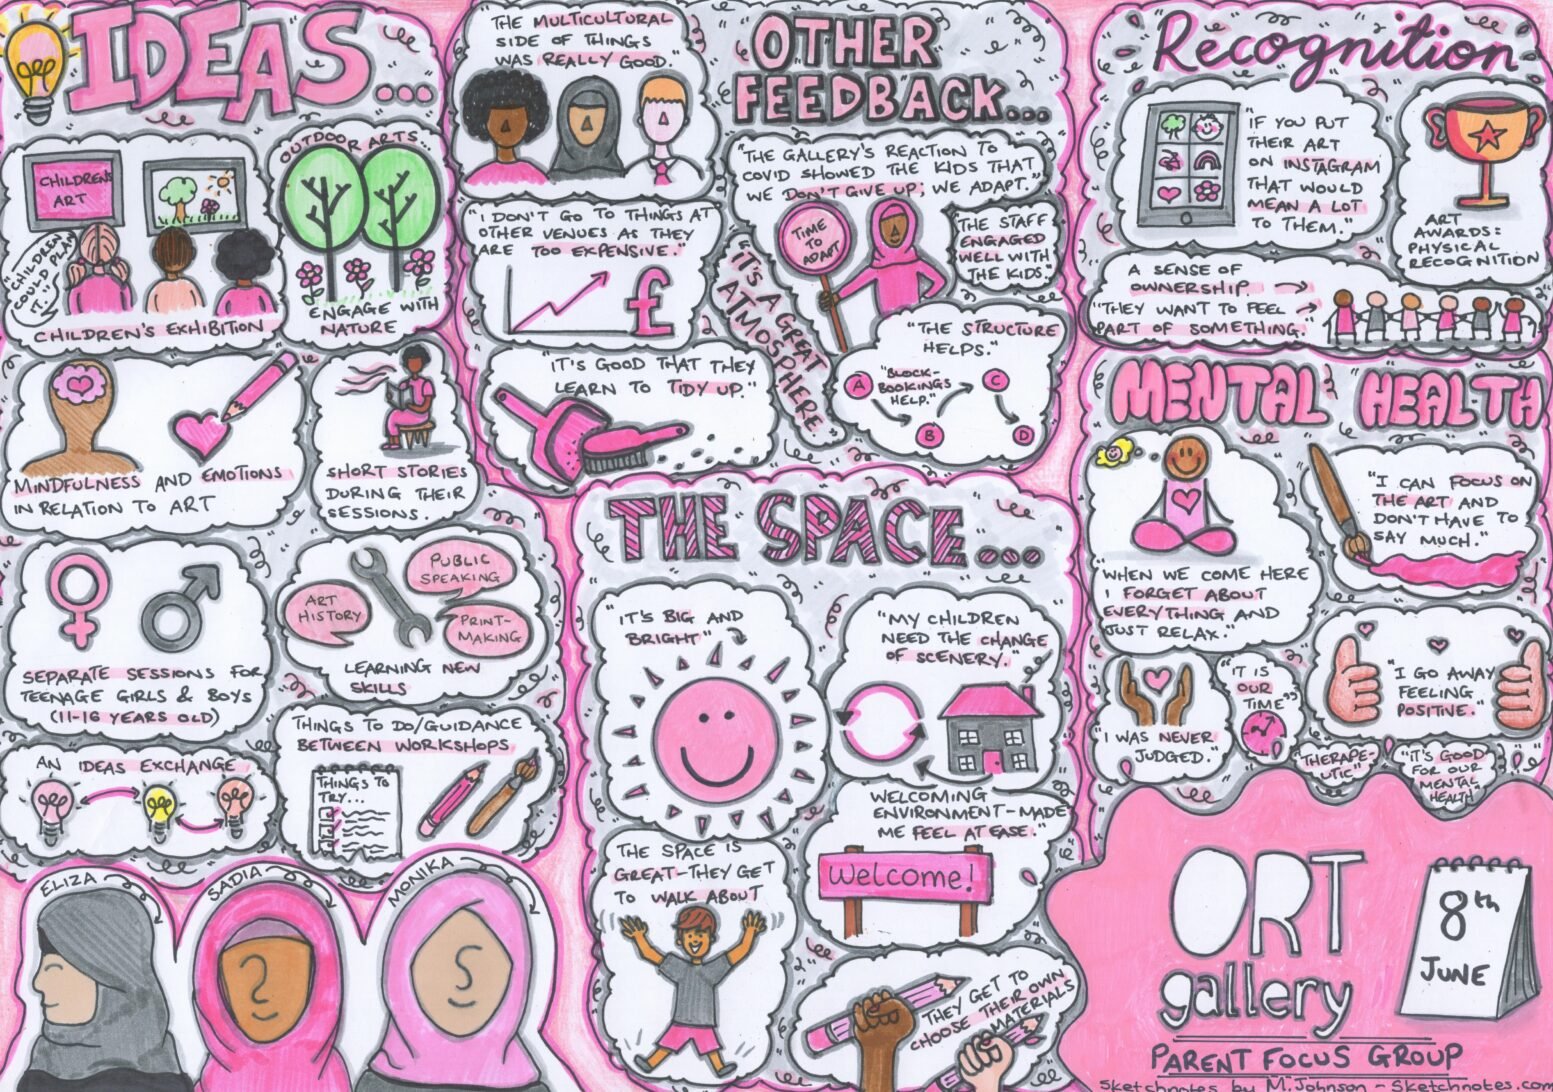 IDEAS...
CHILDREN'S
ART
"CHILDREN
COULD PLAN
IT."
CHILDREN'S EXHIBITION
OUTDOOR ARTS...
ENGAGE WITH
NATURE
MINDFULNESS AND EMOTIONS
IN RELATION TO ART
SHORT STORIES
DURING THEIR
SESSIONS.
SEPARATE SESSIONS FOR
TEENAGE GIRLS & BOYS
(11-16 YEARS OLD)
ART
HISTORY
PUBLIC
SPEAKING
PRINT-
MAKING
LEARNING NEW
SKILLS
AN IDEAS EXCHANGE
THINGS TO DO/GUIDANCE
BETWEEN WORKSHOPS
THINGS TO
TRY...
ELIZA
SADIA
MONIKA
"THE MULTICULTURAL
SIDE OF THINGS
WAS REALLY GOOD."
OTHER
FEEDBACK...
"I DON'T GO TO THINGS AT
OTHER VENUES AS THEY
ARE TOO EXPENSIVE."
£
"THE GALLERY'S REACTION TO
COVID SHOWED THE KIDS THAT
WE DON'T GIVE UP; WE ADAPT."
TIME
TO
ADAPT
THE STAFF
ENGAGED
WELL WITH
THE KIDS."
"IT'S A GREAT
ATMOSPHERE"
"IT'S GOOD THAT THEY
LEARN TO TIDY UP."
"THE STRUCTURE
HELPS."
"BLOCK-
BOOKINGS
HELP."
A
B
C
D
THE SPACE...
"IT'S BIG AND
BRIGHT"
"MY CHILDREN
NEED THE CHANGE
OF SCENERY."
WELCOMING
ENVIRONMENT-MADE
ME FEEL AT EASE."
Welcome!
THE SPACE IS
GREAT-THEY GET
TO WALK ABOUT
THEY GET TO
CHOOSE THEIR OWN
MATERIALS
Recognition
"IF YOU PUT
THEIR ART
ON INSTAGRAM
THAT WOULD
MEAN A LOT
TO THEM."
ART
AWARDS:
PHYSICAL
RECOGNITION
A SENSE OF
OWNERSHIP.
"THEY WANT TO FEEL
PART OF SOMETHING."
MENTAL HEALTH
"WHEN WE COME HERE
I FORGET ABOUT
EVERYTHING AND
JUST RELAX."
"I CAN FOCUS ON
THE ART AND
DON'T HAVE TO
SAY MUCH."
"I WAS NEVER
JUDGED."
"IT IS
OUR
TIME"
"I GO AWAY
FEELING
POSITIVE."
"THERAPE-
UTIC"
"IT'S GOOD
FOR OUR
MENTAL
HEALTH"
ORT
gallery
PARENT FOCUS GROUP
8th
JUNE
Sketchnotes by M.Johnson Sketchnotes.com